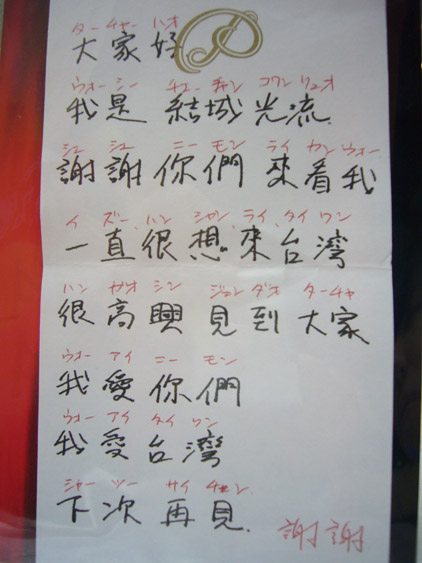 ターチャー ハオ
大家好
ウォーシー チェーチャン コワンリュオ
我是 結城光流.
シェシェニーモン ライカンウォー
謝謝你們 來看我
イ ズー、ハン シャン、ライ、タイ ワン
一直很想來台灣
ハン ガオ シン ジェンダオ ターチャ
很高興 見到大家
ウォー アイ ニー モン
我愛你們
ウォー アイ タイ ワン
我愛台灣
シャー ツー サイ チェン.
下次再見.
謝謝